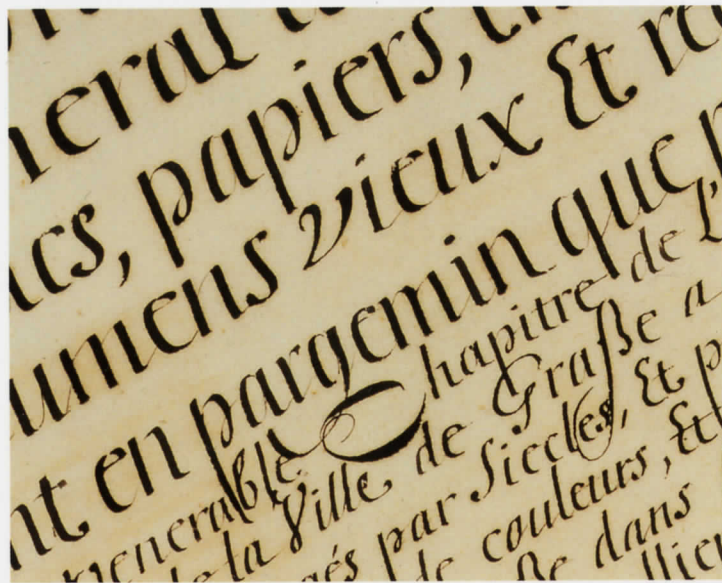 neral
cs, papiers,
umens vieux Et re
nt en pargemin que p
venerable Chapitre de L'
de la Ville de Graße a
gés par Siecles, Et p
de couleurs, Et
ße dans
llier